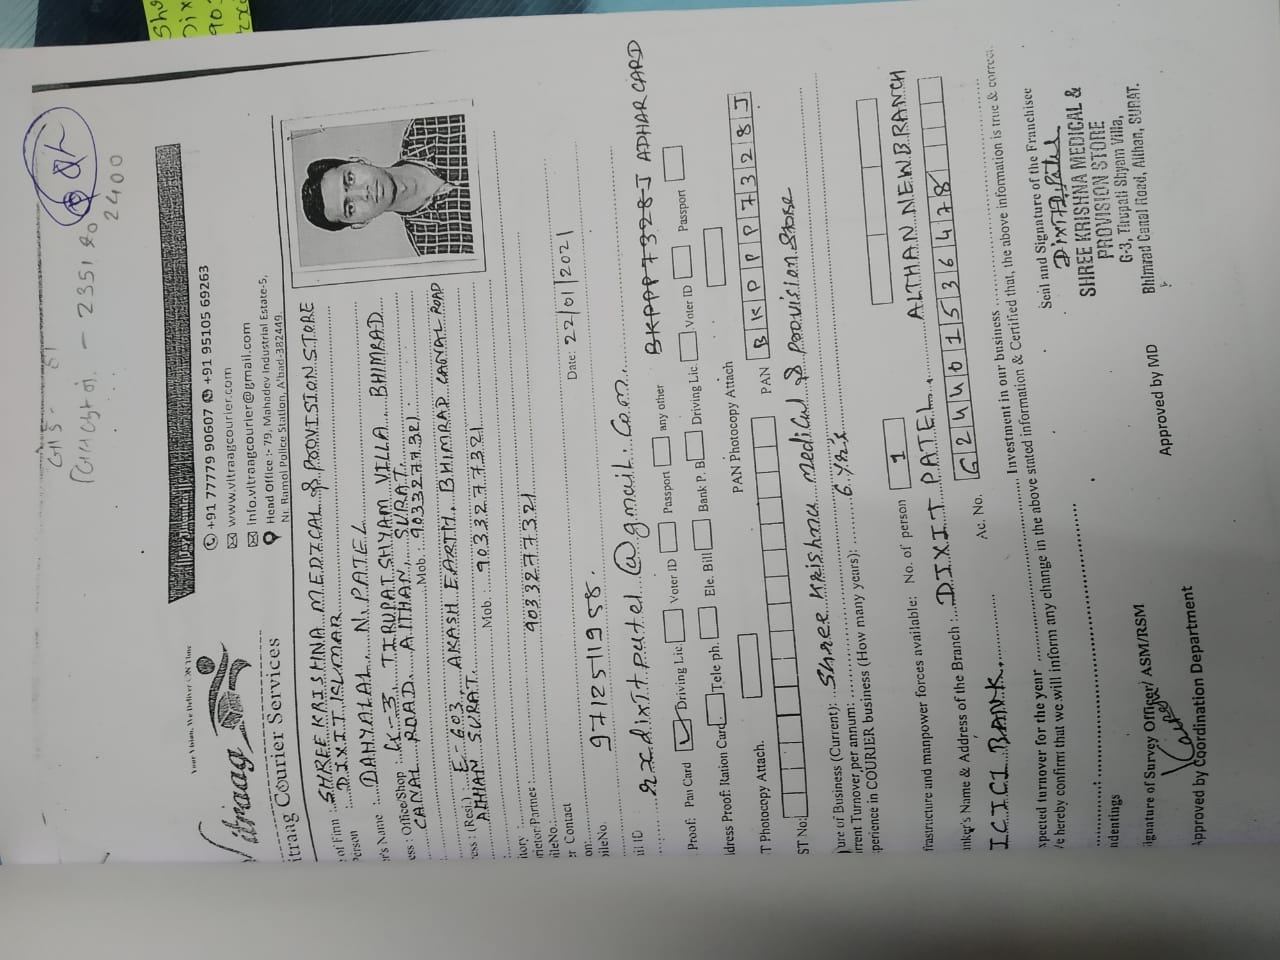 GHS-
- 2351 20
2400
Your Vision, We Deliver ON Time
Vitraag
itraag Courier Services
+91 77779 90607 +91 95105 69263
www.vitraagcourier.com
Info.vitraagcourier@gmail.com
Head Office :- 79, Mahadev Industrial Estate-5,
Nr. Ramol Police Station, A'bad-382449.
of Firm : SHREE KRISHNA MEDICAL & POOVISION STORE
Person DIXITISLUMAR
r's Name : DAHYALAL. N. PATEL
ess : Office/Shop : G-3 TIRUPATI SHYAM VILLA. BHIMRAD
CANAL ROAD. ALTHAN, SURAT.
Mob. : 9033277321
ess : (Resi.) : E-603, AKASH EARTH. BHIMRAD CANAL ROAD
ALTHAN SURAT.
Mob. : 9033277321
itory :
rietor/Partner :
ileNo. : 9033277321
r Contact
on: Date: 22/01/2021
ileNo. 9712511958.
il ID : rxdixitpatel@gmail.com
BKPPP7328J ADHAR CARD
Proof: Pan Card Driving Lic. Voter ID Passport any other
dress Proof: Ration Card Tele ph. Ele. Bill Bank P. B Driving Lic. Voter ID Passport
T Photocopy Attach. PAN Photocopy Attach
ST No: PAN BKPPP7328J
ure of Business (Current): Shree Krishna Medical & Poovision Store
rrent Turnover per annum:
perience in COURIER business (How many years): 6 Yr's
frastructure and manpower forces available: No. of person 1
nker's Name & Address of the Branch : DIXIT PATEL. ALTHAN NEW BRANCH
ICICI BANK. Ac. No. 624401536478
xpected turnover for the year Investment in our business
e hereby confirm that we will inform any change in the above stated information & Certified that, the above information is true & correct.
Seal and Signature of the Franchisee
Dixit Patel
SHREE KRISHNA MEDICAL &
PROVISION STORE
G-3, Tirupati Shyam Villa,
Bhimrad Canal Road, Althan, SURAT.
ndentings
ignature of Survey Officer/ ASM/RSM
Approved by MD
Approved by Coordination Department